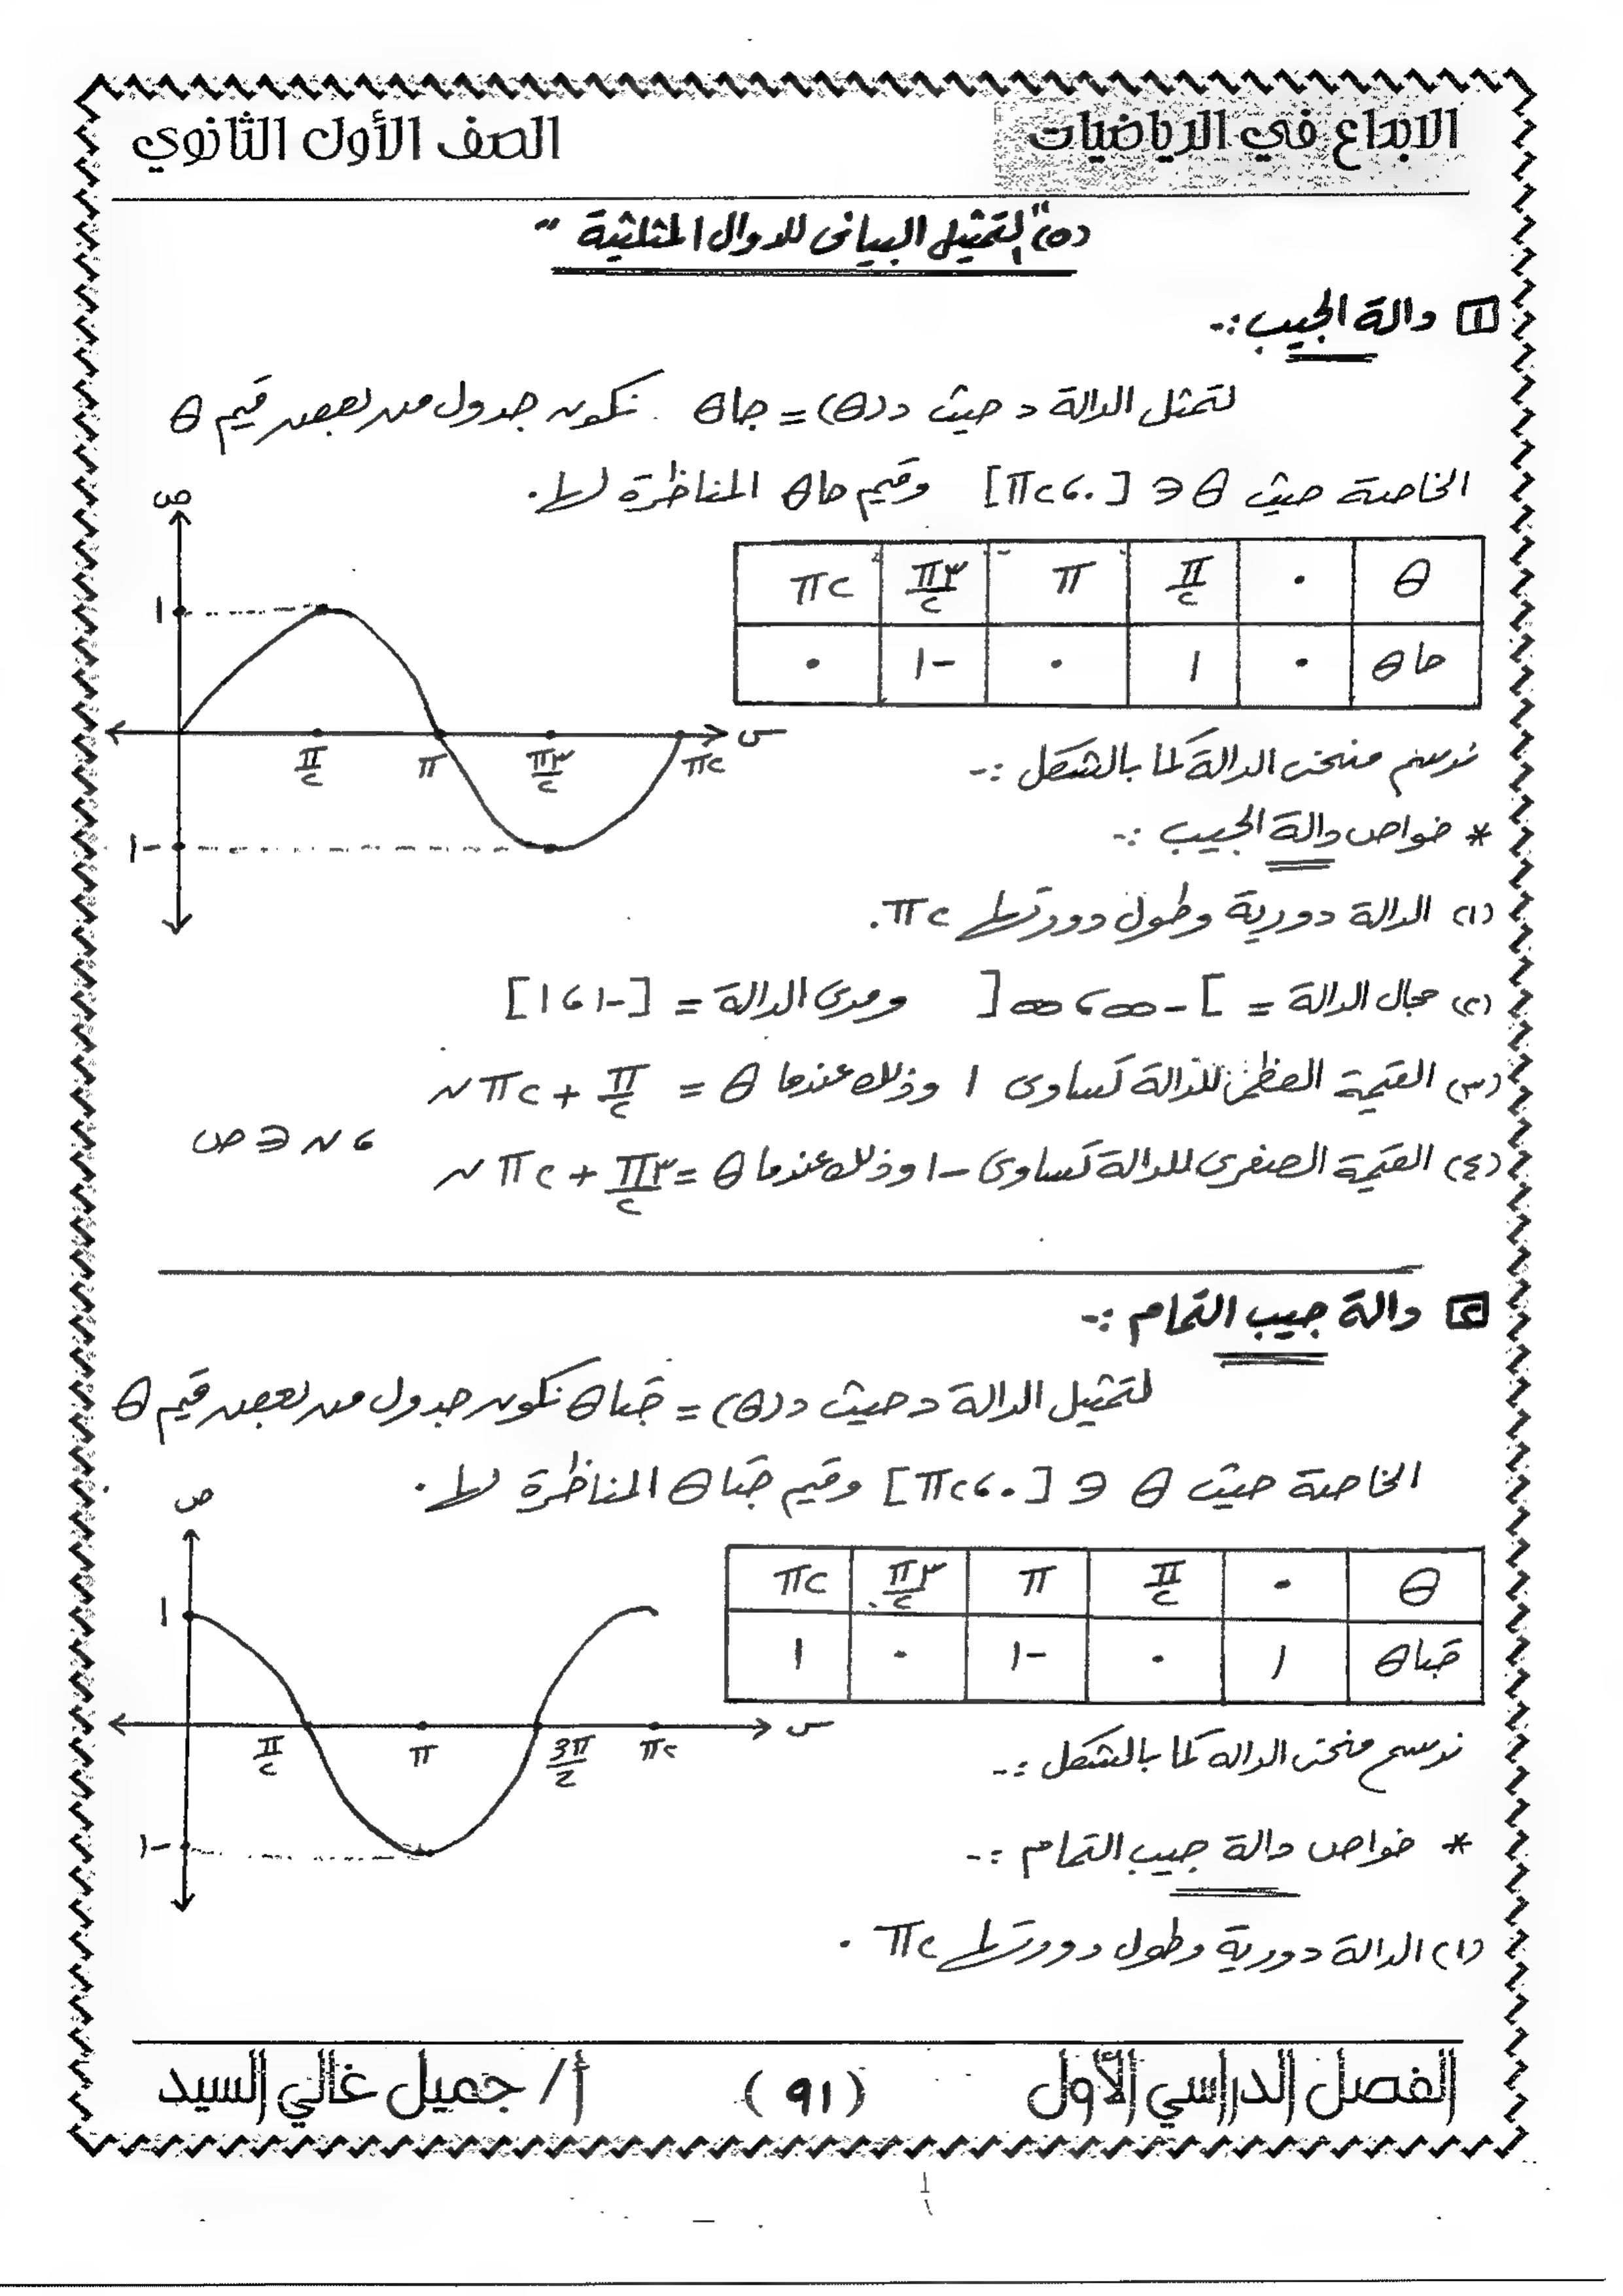 الابداع في الرياضيات
الصف الأول الثانوي
(٥) "التمثيل البيانى للدوال المثلثية"
١ دالة الجيب :-
لتمثل الدالة د حيث د(θ) = جاθ نكون جدول من بعض قيم θ
الخاصة حيث θ ∋ [٠، ٢π] وقيم جاθ المناظرة لها.
θ ٠ π/٢ π ٣π/٢ ٢π
جاθ ٠ ١ ٠ -١ ٠
ص
١
-١
π/٢ π ٣π/٢ ٢π س
نرسم منحنى الدالة كما بالشكل :-
* خواص دالة الجيب :-
(١) الدالة دورية وطول دورتها ٢π.
(٢) مجال الدالة = ]-∞، ∞[ ومدى الدالة = [-١، ١]
(٣) القيمة العظمى للدالة تساوى ١ وذلك عندما θ = π/٢ + ٢π ن
، ن ∋ ص
(٤) القيمة الصغرى للدالة تساوى -١ وذلك عندما θ = ٣π/٢ + ٢π ن
٢ دالة جيب التمام :-
لتمثيل الدالة د حيث د(θ) = جتاθ نكون جدول من بعض قيم θ
الخاصة حيث θ ∋ [٠، ٢π] وقيم جتاθ المناظرة لها.
θ ٠ π/٢ π ٣π/٢ ٢π
جتاθ ١ ٠ -١ ٠ ١
ص
١
-١
π/٢ π 3π/2 ٢π س
نرسم منحنى الدالة كما بالشكل :-
* خواص دالة جيب التمام :-
(١) الدالة دورية وطول دورتها ٢π.
الفصل الدراسي الأول
(٩١)
أ/ جميل غالي السيد